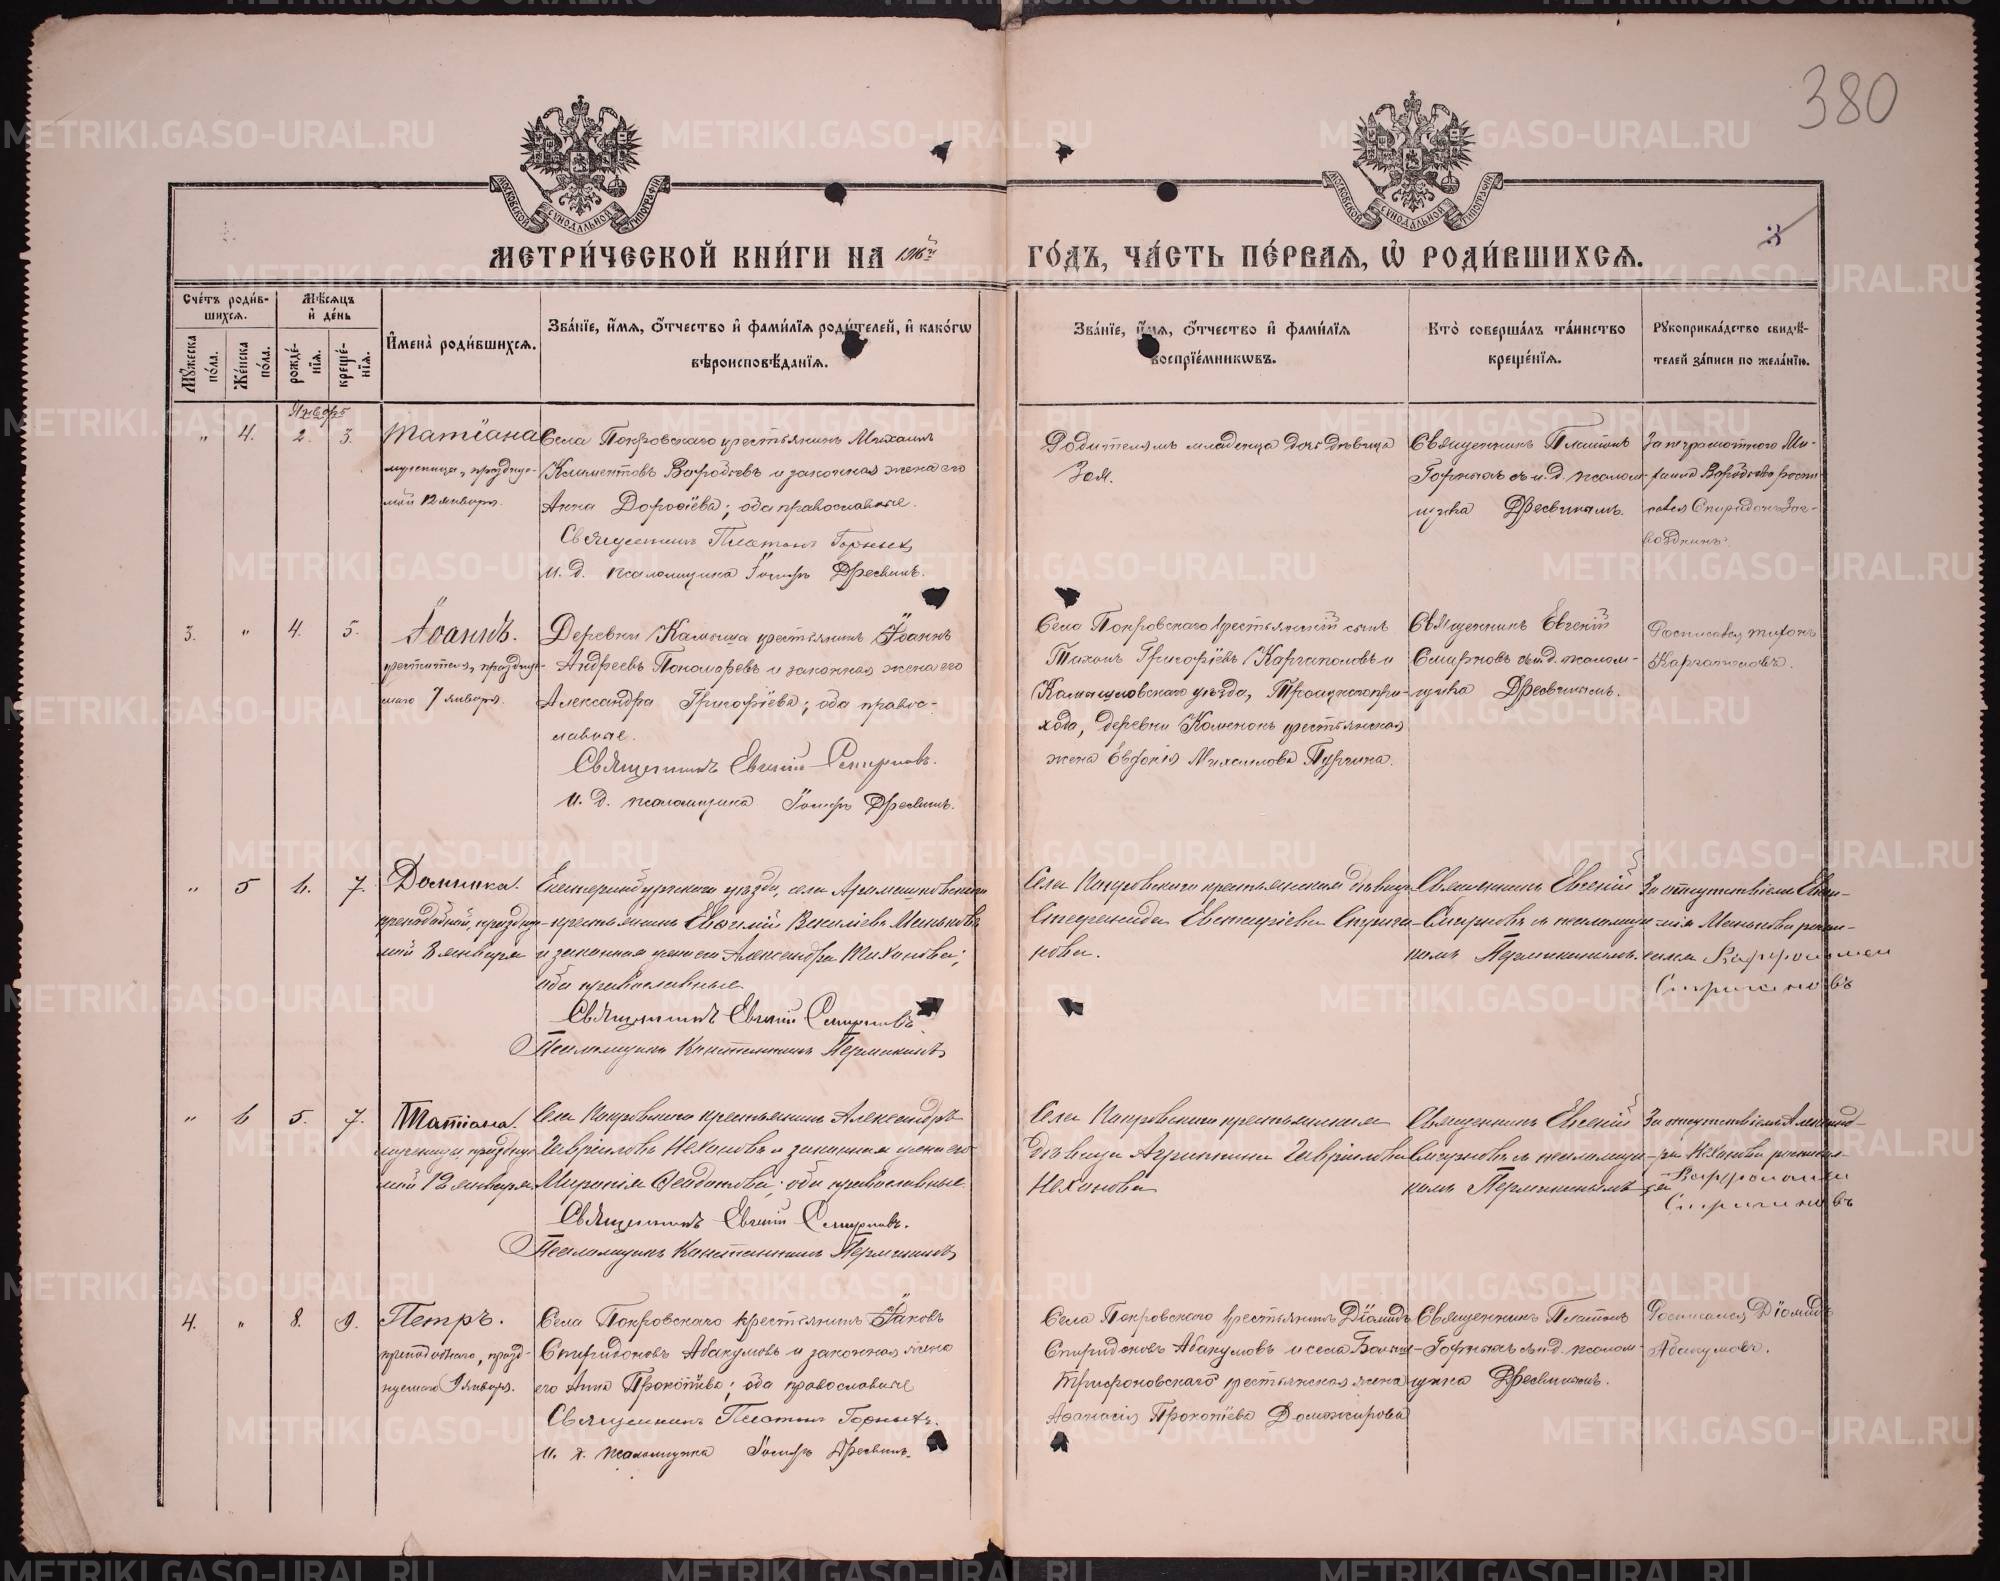 380
МОСКОВСКОЙ СУНОДАЛЬНОЙ ТИПОГРАФІИ
МОСКОВСКОЙ СУНОДАЛЬНОЙ ТИПОГРАФІИ
3
МЕТРИ́ЧЕСКОЙ КНИ́ГИ НА 1916й ГО́ДЪ, ЧА́СТЬ ПЕ́РВАЯ, Ѡ РОДИ́ВШИХСЯ.
Сче́тъ роди́в-
шихся.
Му́жеска по́ла.
Же́нска по́ла.
Мѣ́сяцъ
и҆ де́нь
рожде́-
нїя.
креще́-
нїя.
И҆мена̀ роди́вшихся.
Зва́нїе, и҆́мя, ѻ҆́тчество и҆ фами́лїя роди́телей, и҆ како́гѡ
вѣроисповѣ́данїя.
Зва́нїе, и҆́мя, ѻ҆́тчество и҆ фами́лїя
воспрїе́мникѡвъ.
Кто̀ соверша́лъ та́инство
креще́нїя.
Рꙋкоприкла́дство свидѣ́-
телей за́писи по жела́нїю.
Январь
„ 4. 2. 3.
Татіана
мученица, праздну-
мой 12 января.
Села Покровскаго крестьянинъ Михаилъ
Климентовъ Воробьевъ и законная жена его
Анна Дорофѣева; оба православные.
Священникъ Платонъ Горныхъ
И. д. псаломщика Іосифъ Дресвинъ.
Родителямъ младенца дочь девица
Зоя.
Священникъ Платонъ
Горныхъ съ и. д. псалом-
щика Дресвинымъ.
За неграмотного Ми-
хаила Воробьева роспи-
сался Спиридонъ Заг-
воздкинъ.
3. „ 4. 5.
Іоаннъ.
крестителя, праздну-
маго 7 января.
Деревни Камыша крестьянинъ Іоаннъ
Андреевъ Пономаревъ и законная жена его
Александра Григоріева; оба правос-
лавные.
Священникъ Евгеній Смирновъ.
И. д. псаломщика Іосифъ Дресвинъ.
Села Покровскаго крестьянскій сынъ
Тихонъ Григоріевъ Каргаполовъ и
Камышловскаго уѣзда, Троицкаго при-
хода, деревни Каменокъ крестьянская
жена Евдокія Михаилова Пургина.
Священникъ Евгеній
Смирновъ съ и.д. псалом-
щика Дресвинымъ.
Росписался Тихонъ
Каргаполовъ.
„ 5 6. 7.
Домника.
преподобной, праздну-
мой 8 января
Екатеринбургскаго уѣзда, села Арамашковскаго
крестьянинъ Евѳимій Василіевъ Миньковъ
и законная жена его Александра Тиханова;
оба православные
Священникъ Евгеній Смирновъ
Псаломщикъ Константинъ Пермикинъ
Села Покровскаго крестьянская дѣвица
Стефанида Евстафіева Спири-
нова.
Священникъ Евгеній
Смирновъ съ псаломщи-
комъ Пермикинымъ.
За отсутствіемъ Евѳи-
мія Минькова роспи-
сался Варфоломей
Спириновъ
„ 6 5. 7.
Татіана.
мученицы празднує-
мой 12 января
Села Покровскаго крестьянинъ Александръ
Гавріиловъ Нехановъ и законная жена его
Миронія Ѳедотова; оба православные
Священникъ Евгеній Смирновъ.
Псаломщикъ Константинъ Пермикинъ
Села Покровскаго крестьянская
дѣвица Агрипина Гавріилова
Неханова
Священникъ Евгеній
Смирновъ съ псаломщи-
комъ Пермикинымъ
За отсутствіемъ Александ-
ра Неханова росписал-
ся Варфоломей
Спириновъ
4. „ 8. 9.
Петръ.
преподобнаго, празд-
нуемаго 9 января.
Села Покровскаго крестьянинъ Іаковъ
Спиридоновъ Абакумовъ и законная жена
его Анна Прокопіева; оба православные
Священникъ Платонъ Горныхъ.
И. д. псаломщика Іосифъ Дресвинъ.
Села Покровскаго крестьянинъ Діомидъ
Спиридоновъ Абакумовъ и села Больше-
Трифоновскаго крестьянская жена
Аѳанасія Прокопіева Доможирова
Священникъ Платонъ
Горныхъ съ и.д. псалом-
щика Дресвинымъ.
Росписался Діомидъ
Абакумовъ.
METRIKI.GASO-URAL.RU